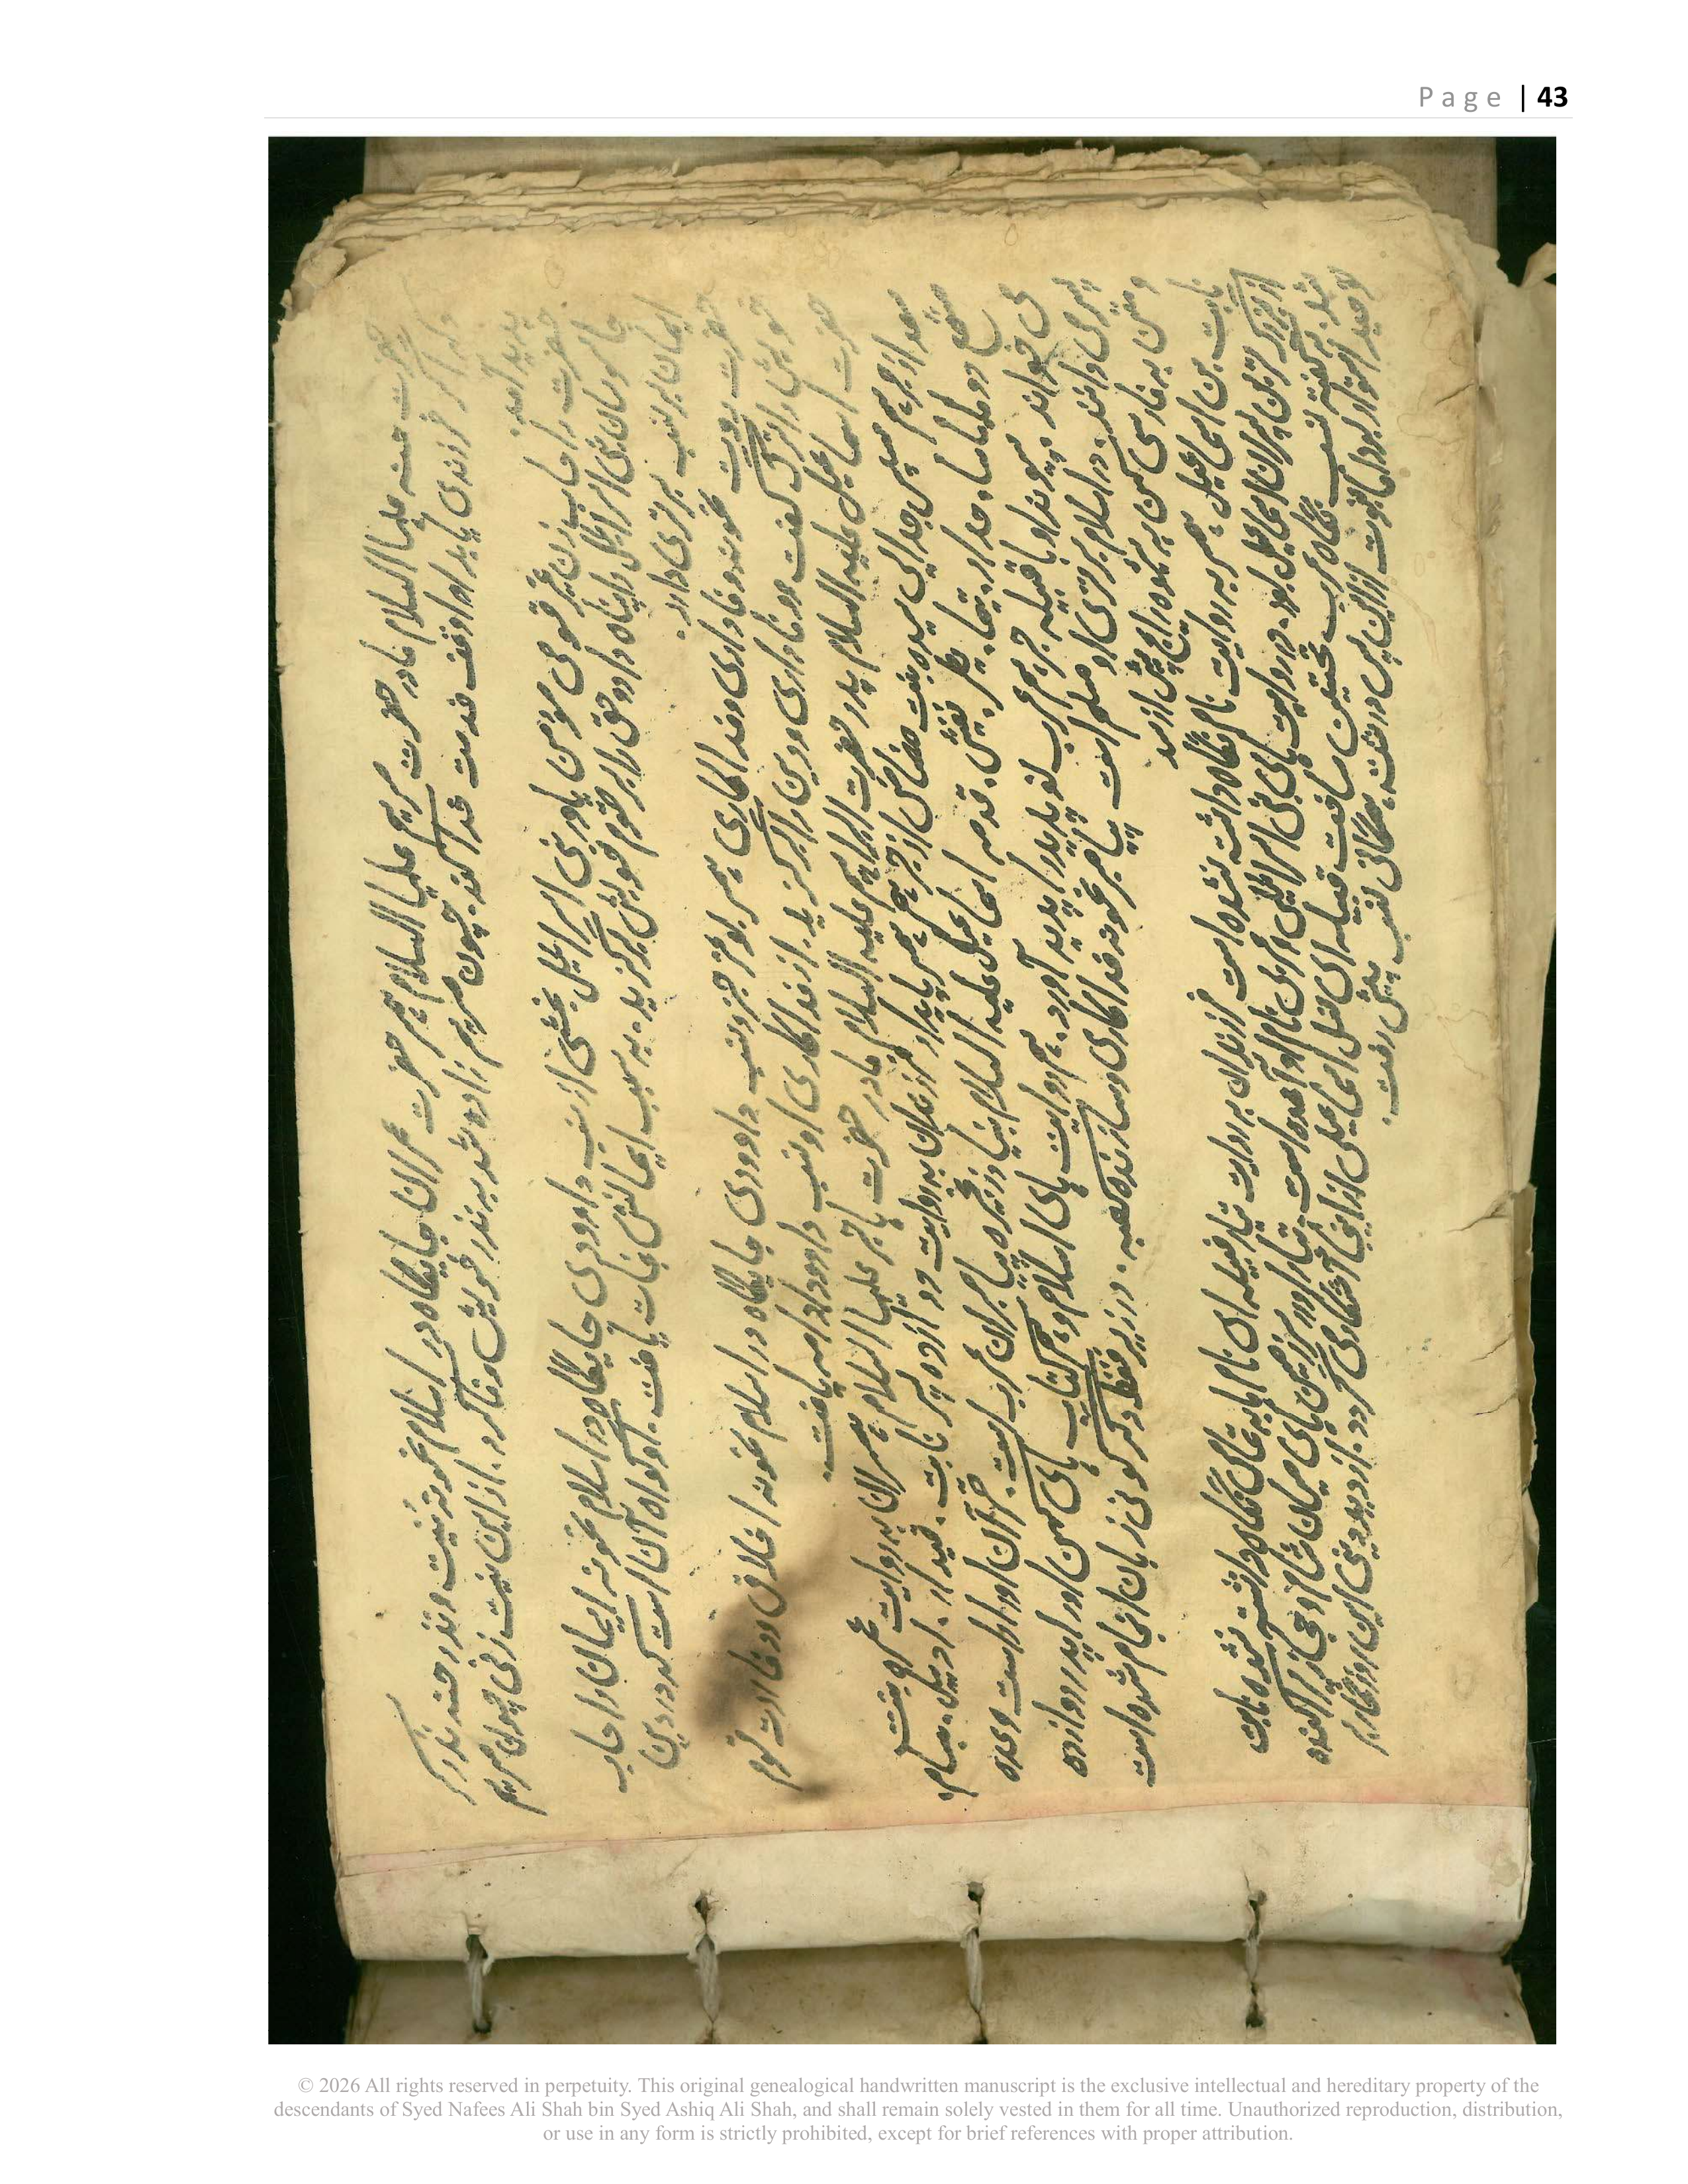 Page | 43
حضرت حنه علیها السلام مادر حضرت مریم علیها السلام همسر حضرت عمران جایگاه در اسلام نمونه نیت و نذر حنه نذر کرد
که اگر فرزندی یابد او را وقف خدمت خدا کند. چون مریم زاده شد به نذر خویش وفا کرد. از این نیت زنی چون مریم
پدید آمد.
حضرت راحاب زن غیر قومی مومن یاور بنی اسرائیل بخشی از نسب داوودی جایگاه در اسلام نمونه ایمان راحاب
جاسوسان بنی اسرائیل را پناه داد و حق را بر قوم خویش برگزید. به سبب ایمانش نجات یافت. او گواه آن است که در دین
ایمان بر نسب برتری دارد.
حضرت روت نمونه وفاداری و فداکاری همسر بوعز جز و نسب داوودی جایگاه در اسلام نمونه اخلاق و وفا روت قوم
خویش را ترک گفت و وفاداری و دین را برگزید. از فداکاری او نسب داوود ادامه یافت.
حضرت اسماعیل علیه السلام پدر حضرت ابراهیم علیه السلام مادر حضرت هاجر علیها السلام همسران به روایت عمره بنت
سعد از جرهم سپس جدایی سیده بنت مضاض از جرهم همسر پایدار فرزندان به روایت دوازده پسر نابت، قیدار، ادبیل، مبسام،
مشمع دوما، مسا، حداد، تیما، یطور، نفیش، قدمه اسماعیل علیه السلام بنیاد زنجیره پیامبران عرب است. قرآن او را راست وعده
می خواند. پیوند او با قبیله جرهم عرب نو پایدار پدید آورد. هم روایت های اسلام و هم کتاب های کهن او را پدر دوازده
پسر می دانند. در اسلام برتری او مسلم است پیامبر نمونه فداکاری و سازنده کعبه. در زیر فقط دگرگونی زبان انجام شده است
و متن به فارسی کهن به شیوه رایج پیش از سد
نابت بن اسماعیل همسر به روایت نام نگاه داشته نشده است فرزندان به روایت تبار قبیله ای نام ها به تمامی نگاه داشته نشده نابت
از بزرگ ترین پسران اسماعیل بود. در روایت های بنی اسرائیلی و عربی نام او آمده است. تبار او در سرزمین های میان شام و حجاز پراکنده
شد. به گفته نسب نگاه عرب نخستین ساخت قبیله ای نسل اسماعیل از اینجا آشکار می گردد. از دید دینی این روزگار بر
توحید استوار بود اما نبوت از این پس در شاخه همگانی نسب پیش رفت.
© 2026 All rights reserved in perpetuity. This original genealogical handwritten manuscript is the exclusive intellectual and hereditary property of the
descendants of Syed Nafees Ali Shah bin Syed Ashiq Ali Shah, and shall remain solely vested in them for all time. Unauthorized reproduction, distribution,
or use in any form is strictly prohibited, except for brief references with proper attribution.